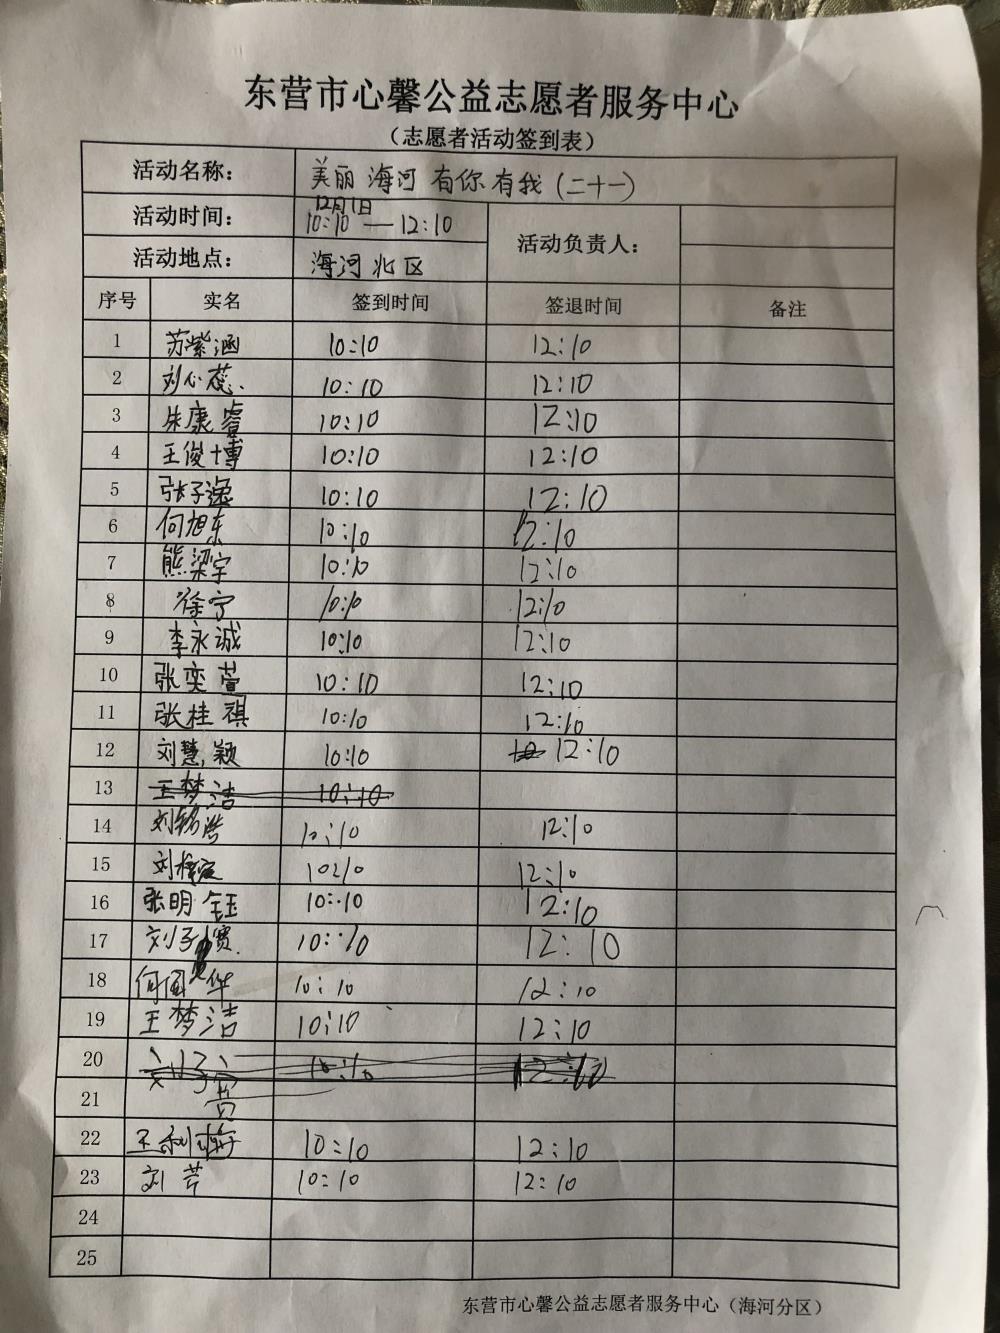 东营市心馨公益志愿者服务中心
（志愿者活动签到表）
活动名称： 美丽海河有你有我（二十一）
活动时间： 12月1日 10:10 — 12:10 活动负责人：
活动地点： 海河北区
序号 实名 签到时间 签退时间 备注
1 苏紫涵 10:10 12:10
2 刘心蕊 10:10 12:10
3 朱康睿 10:10 12:10
4 王俊博 10:10 12:10
5 张子逸 10:10 12:10
6 何旭东 10:10 12:10
7 熊梁宇 10:10 12:10
8 徐宁 10:10 12:10
9 李永诚 10:10 12:10
10 张奕萱 10:10 12:10
11 张桂祺 10:10 12:10
12 刘慧颖 10:10 12:10
13 王梦洁 10:10
14 10:10 12:10
15 10210 12:10
16 张明钰 10:10 12:10
17 刘子 10:10 12:10
18 何国华 10:10 12:10
19 王梦洁 10:10 12:10
20 刘子 10:10 12:10
21
22 王利梅 10:10 12:10
23 刘芹 10:10 12:10
24
25
东营市心馨公益志愿者服务中心（海河分区）